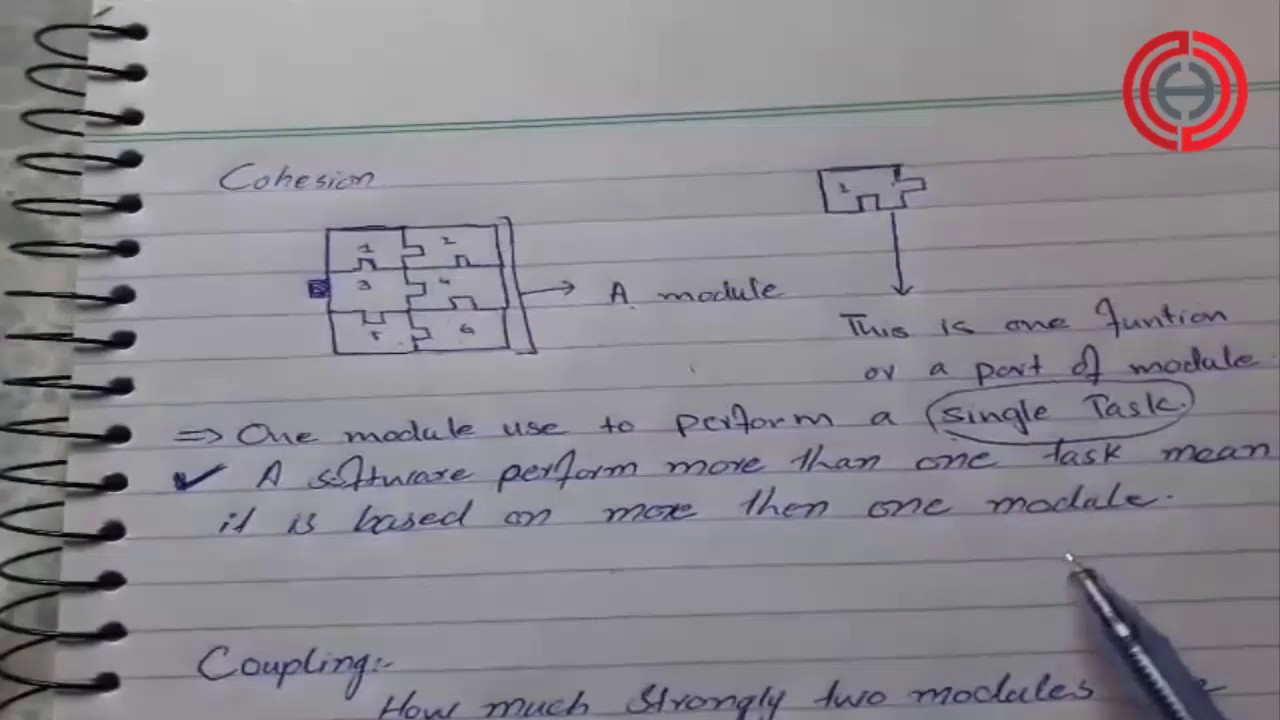 Cohesion
1 2
3 4
5 6
A module
1
This is one funtion
or a part of module
=> One module use to perform a single Task.
✔ A software perform more than one task mean
it is based on more then one module.
Coupling:-
How much strongly two modules